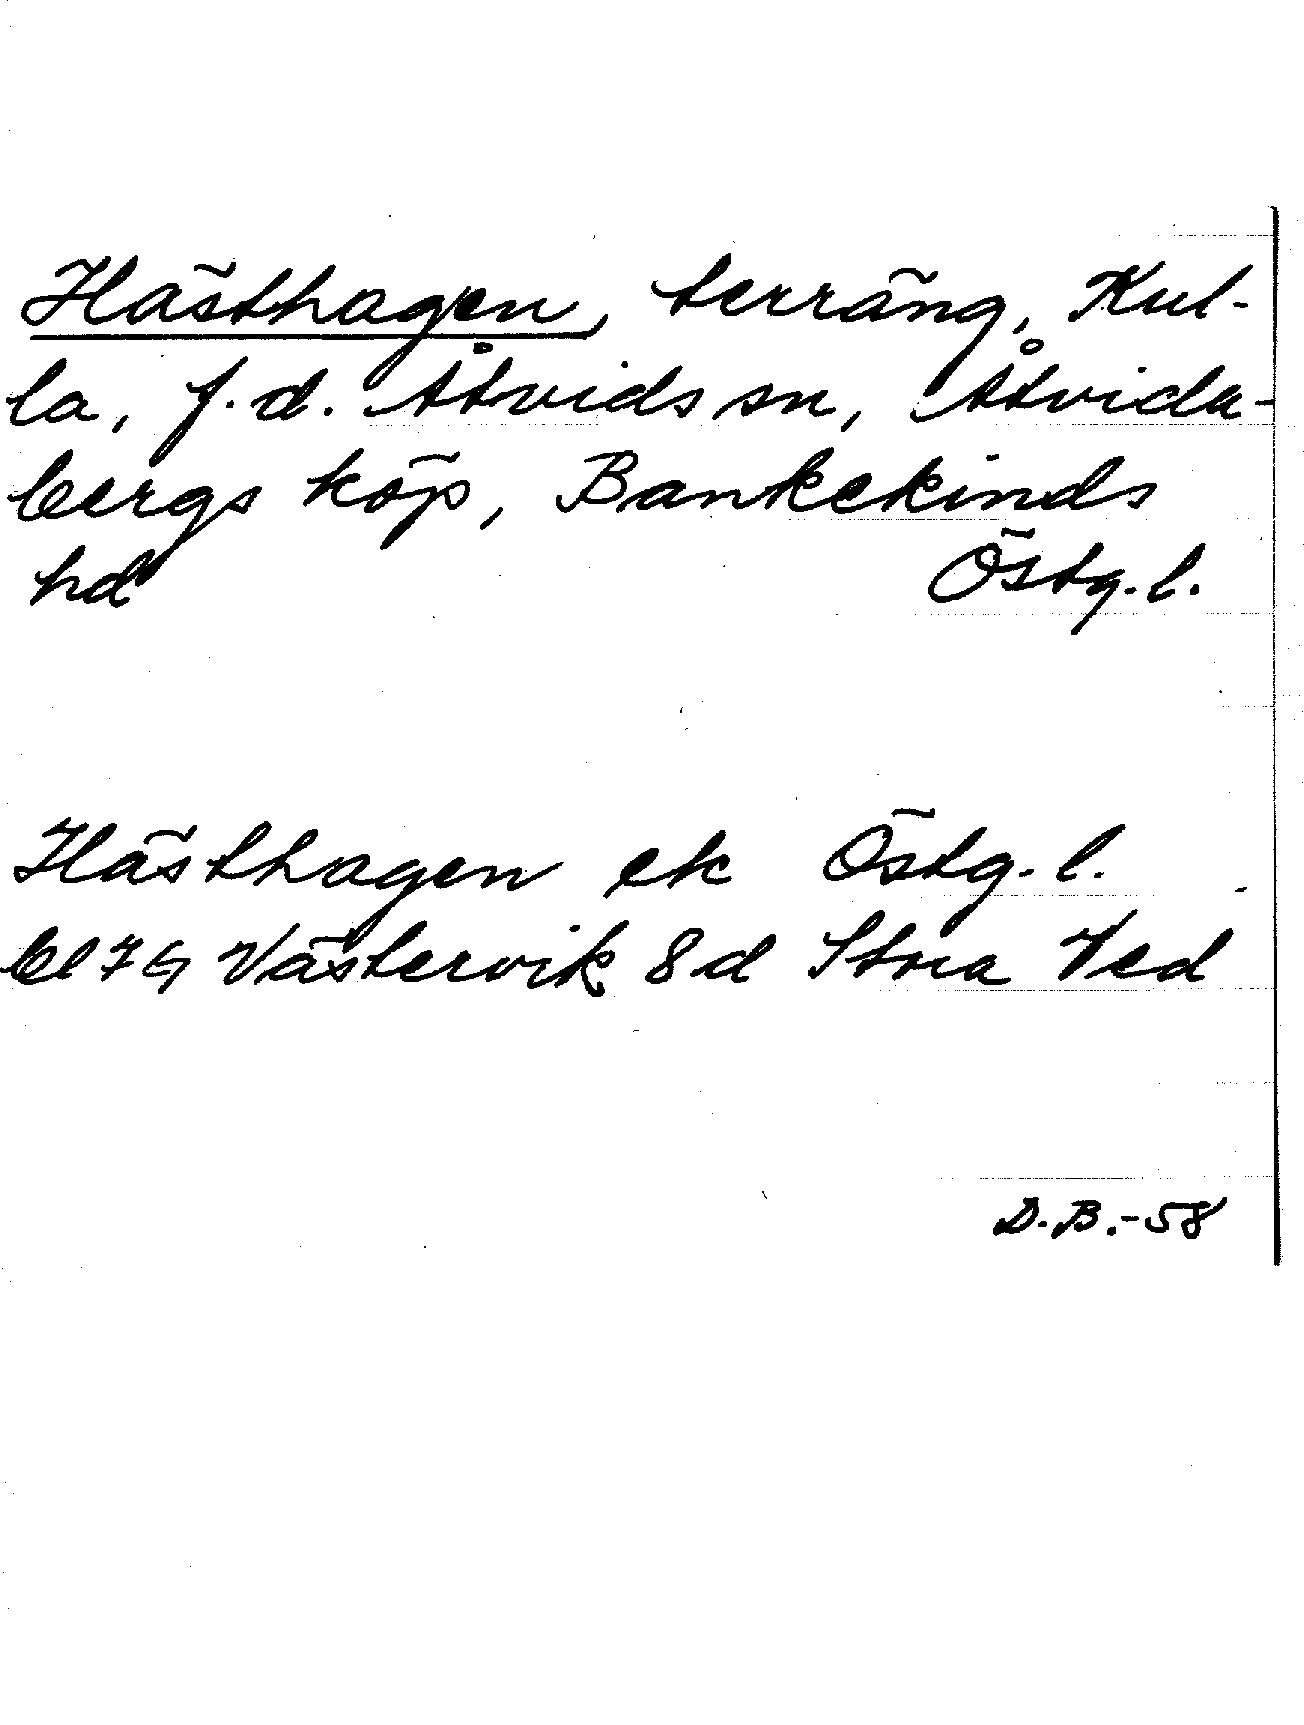 Hästhagen, terräng, Kul-
la, f.d. Åtvids sn, Åtvida-
bergs köp, Bankekinds
hd Östg.l.
Hästhagen ek Östg.l.
bl 7G Västervik 8d Stora Ved
D.B.-58